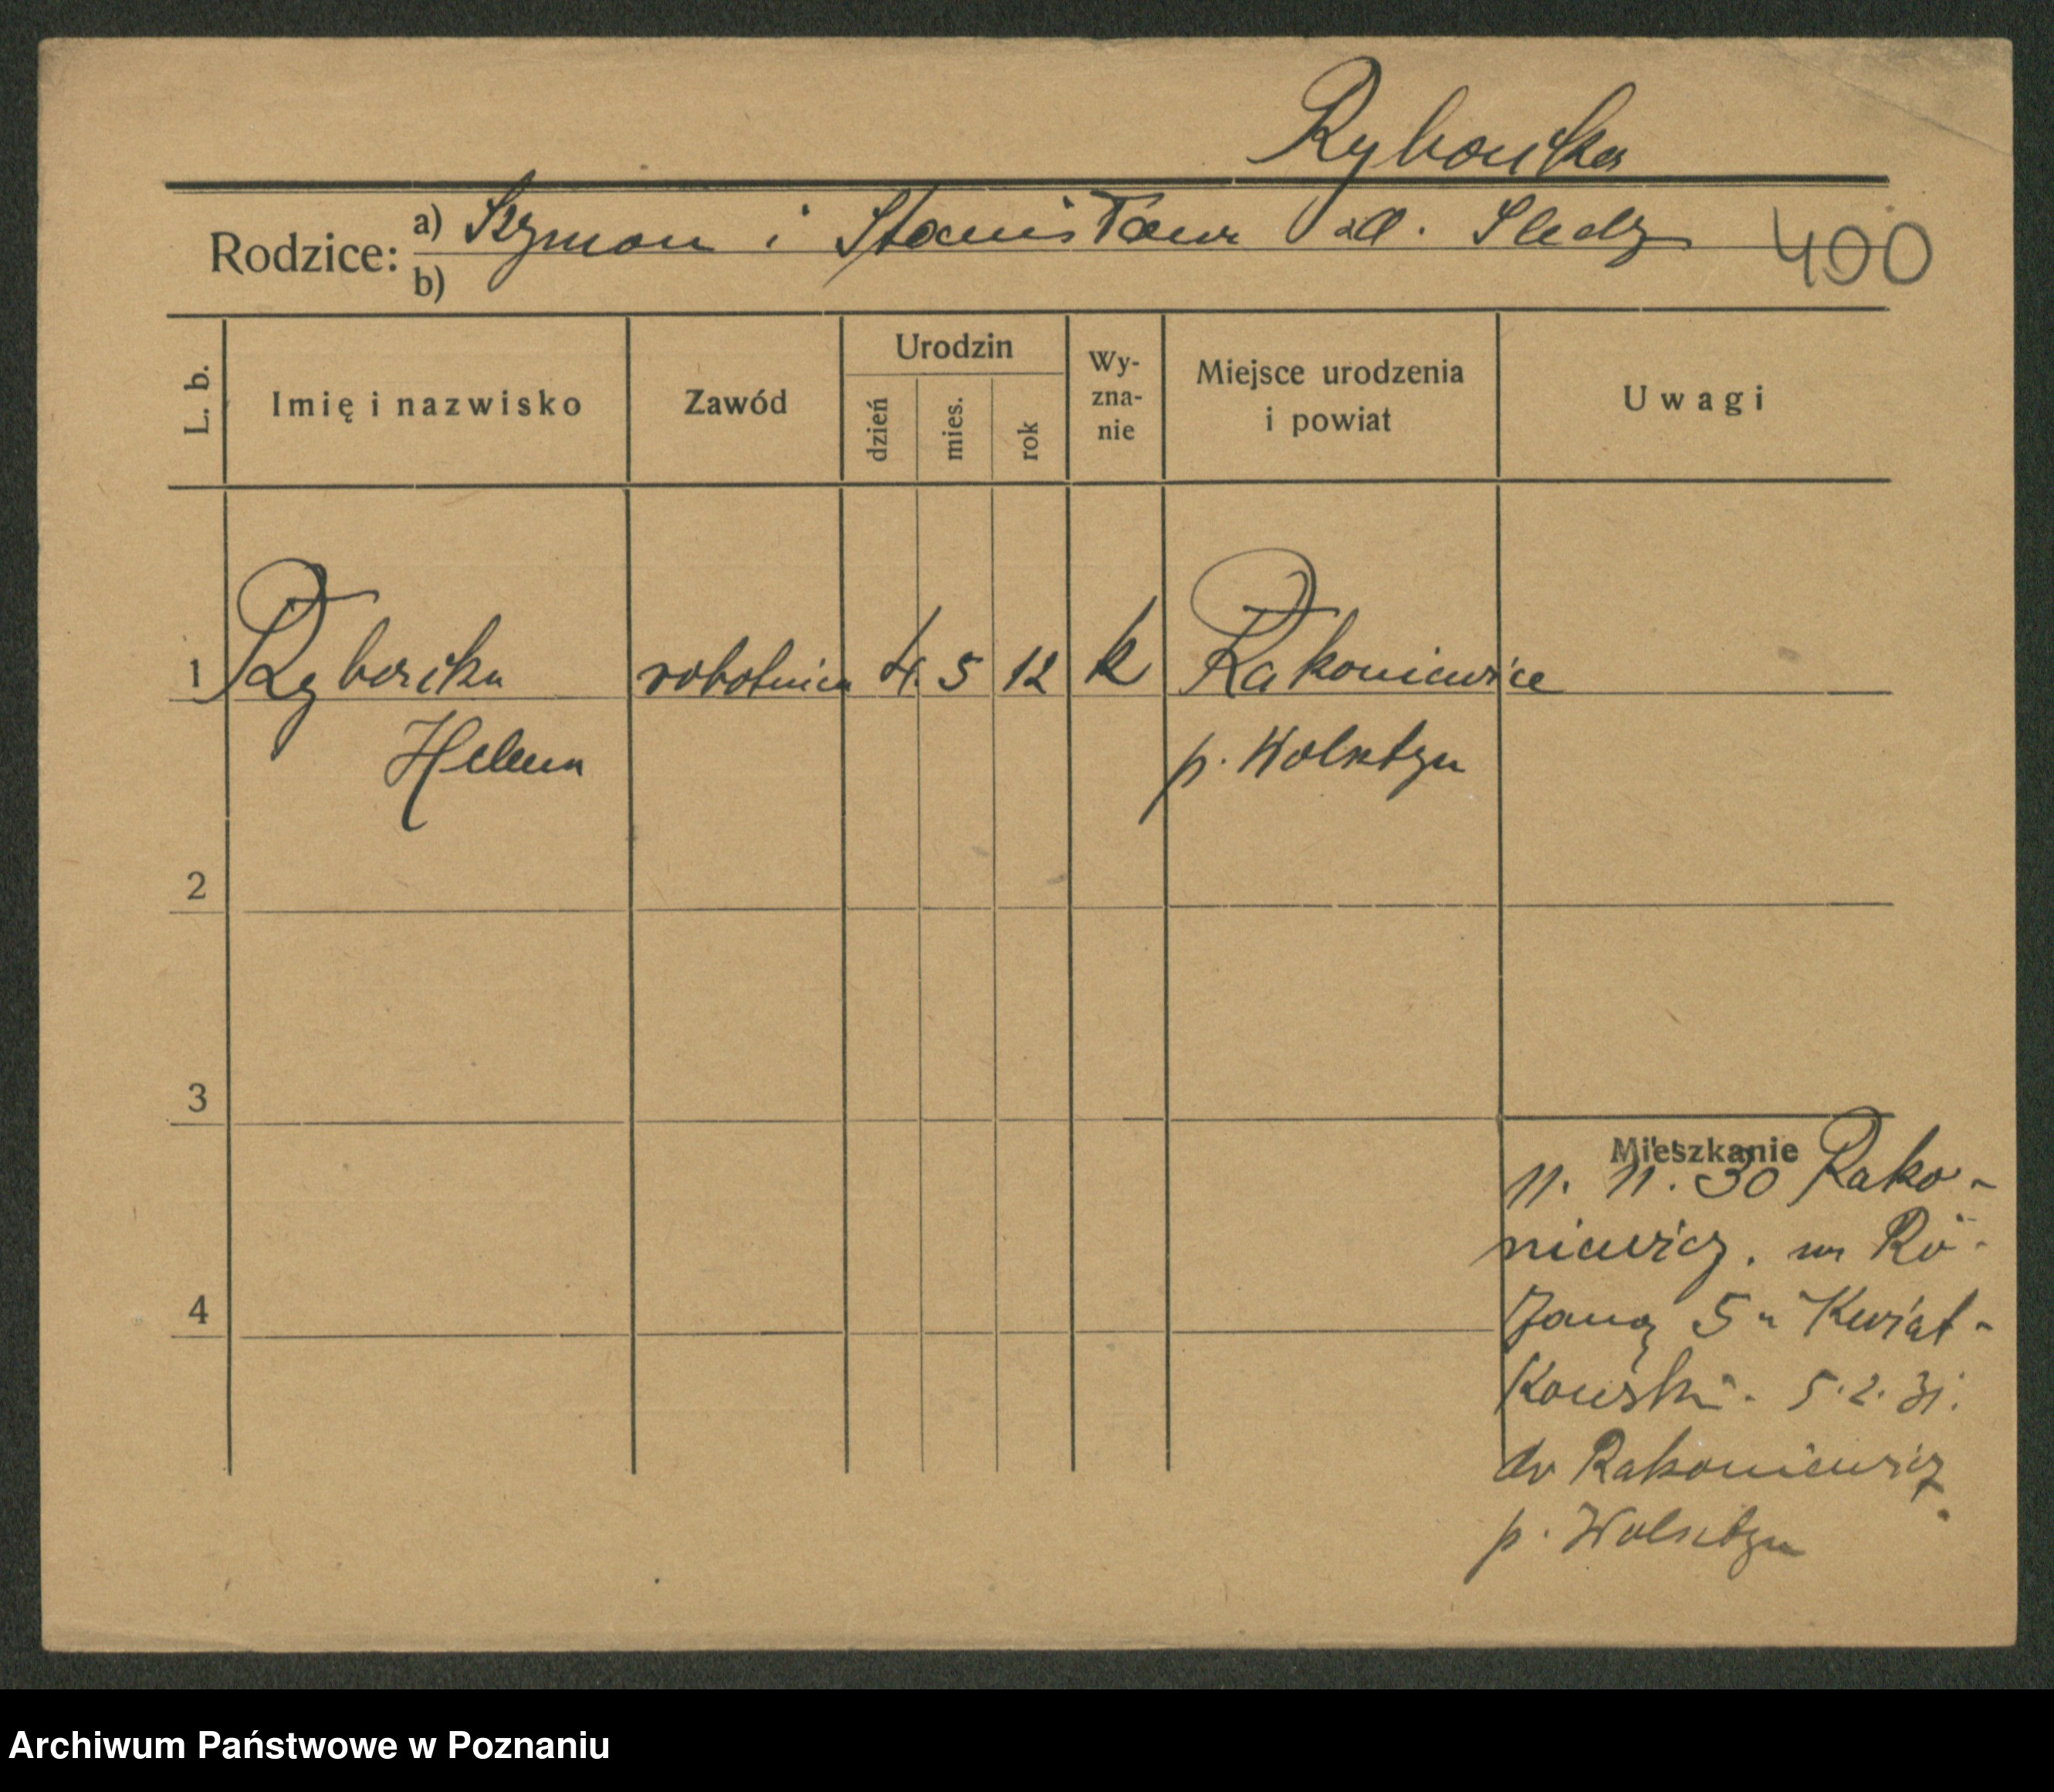 Ryborska
Rodzice: a) Szymon i Stanisława Śledz
b)
400
L. b. Imię i nazwisko Zawód Urodzin dzień mies. rok Wy-zna-nie Miejsce urodzenia i powiat Uwagi
1 Ryborska robotnica 4. 5 12 k Rakoniewice
Helena p. Wolsztyn
2
3
Mieszkanie
11. 11. 30 Rako-
niewicz. Ró-
4
żana 5 u Kwiat-
kowski. 5.2.31.
do Rakoniewicz
p. Wolsztyn
Archiwum Państwowe w Poznaniu